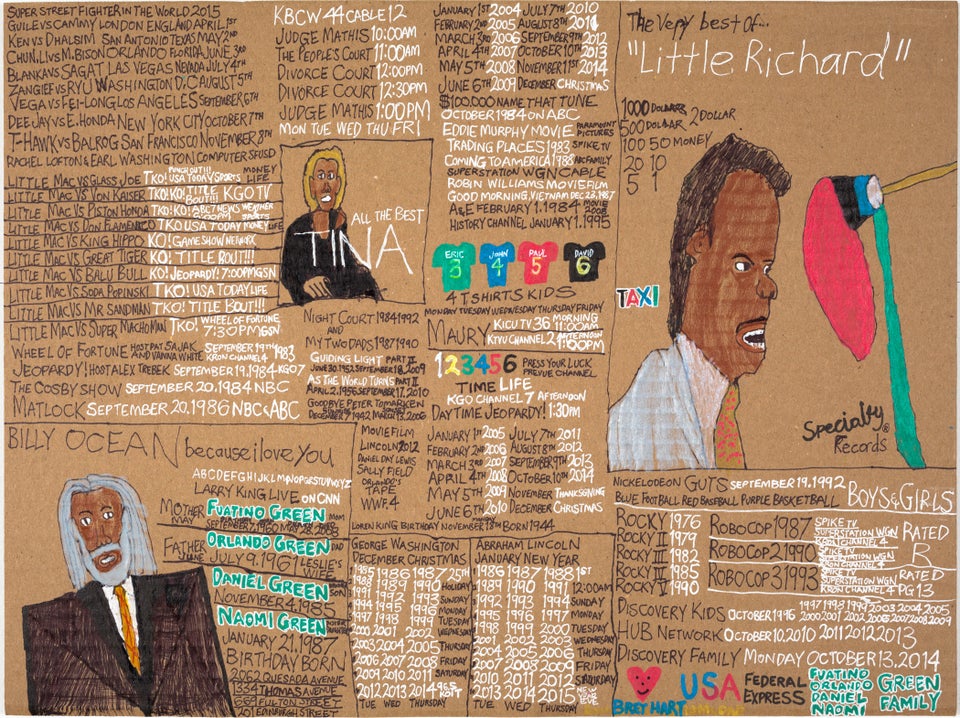 SUPER STREET FIGHTER IN THE WORLD 2015
GUILE VS CAMMY LONDON ENGLAND APRIL 1ST
KEN VS DHALSIM SAN ANTONIO TEXAS MAY 2ND
CHUN, LI VS M. BISON ORLANDO FLORIDA JUNE 3RD
BLANKA VS SAGAT LAS VEGAS NEVADA JULY 4TH
ZANGIEF VS RYU WASHINGTON D,C AUGUST 5TH
VEGA VS FEI-LONG LOS ANGELES SEPTEMBER 6TH
DEE JAY VS E. HONDA NEW YORK CITY OCTOBER 7TH
T-HAWK VS BALROG SAN FRANCISCO NOVEMBER 8TH
RACHEL LOFTON & EARL WASHINGTON COMPUTER SFUSD
LITTLE MAC VS GLASS JOE TKO! PUNCH OUT!!! USA TODAY SPORTS MONEY LIFE
LITTLE MAC VS VON KAISER TKO! KO! TITLE BOUT!!! KGO TV
LITTLE MAC VS PISTON HONDA TKO! KO! ABC 7 NEWS WEATHER 5:00PM SPORTS
LITTLE MAC VS DON FLAMENCO TKO USA TODAY MONEY LIFE
LITTLE MAC VS KING HIPPO KO! GAME SHOW NETWORK
LITTLE MAC VS GREAT TIGER KO! TITLE BOUT!!!
LITTLE MAC VS BALU BULL KO! JEOPARDY! 7:00PM GSN
LITTLE MAC VS SODA POPINSKI TKO! USA TODAY LIFE
LITTLE MAC VS MR SANDMAN TKO! TITLE BOUT!!!
LITTLE MAC VS SUPER MACHO MAN TKO! WHEEL OF FORTUNE 7:30PM GSN
WHEEL OF FORTUNE HOST PAT SAJAK AND VANNA WHITE SEPTEMBER 19TH 1983 KRON CHANNEL 4
JEOPARDY! HOST ALEX TREBEK SEPTEMBER 19, 1984 KGO 7
THE COSBY SHOW SEPTEMBER 20. 1984 NBC
MATLOCK SEPTEMBER 20. 1986 NBC & ABC
KBCW 44 CABLE 12
JUDGE MATHIS 10:00AM
THE PEOPLES COURT 11:00AM
DIVORCE COURT 12:00PM
DIVORCE COURT 12:30PM
JUDGE MATHIS 1:00PM
MON TUE WED THU FRI
ALL THE BEST
TINA
NIGHT COURT 1984 1992
AND
MY TWO DADS 1987 1990
GUIDING LIGHT PART II
JUNE 30. 1952 SEPTEMBER 18, 2009
AS THE WORLD TURNS PART II
APRIL 2. 1956 SEPTEMBER 17, 2010
GOODBYE PETER TOMARKEN
DECEMBER 7 1942 MARCH 13, 2006
JANUARY 1ST 2004 JULY 7TH 2010
FEBRUARY 2ND 2005 AUGUST 8TH 2011
MARCH 3RD 2006 SEPTEMBER 9TH 2012
APRIL 4TH 2007 OCTOBER 10TH 2013
MAY 5TH 2008 NOVEMBER 1ST 2014
JUNE 6TH 2009 DECEMBER CHRISTMAS
$100.000 NAME THAT TUNE
OCTOBER 1984 ON ABC
EDDIE MURPHY MOVIE PARAMOUNT PICTURES
TRADING PLACES 1983 SPIKE TV
COMING TO AMERICA 1988 ABC FAMILY
SUPERSTATION WGN CABLE
ROBIN WILLIAMS MOVIE FILM
GOOD MORNING, VIETNAM DEC 23, 1987
A&E FEBRUARY 1. 1984 MOVIE 2008
HISTORY CHANNEL JANUARY 1. 1995
ERIC 3 JOHN 4 PAUL 5 DAVID 6
4 T SHIRTS KIDS
MONDAY TUESDAY WEDNESDAY THURSDAY FRIDAY
MAURY KICU TV 36 MORNING 11:00AM
KTVU CHANNEL 2 AFTERNOON 1:00PM
123456 PRESS YOUR LUCK PREVUE CHANNEL
TIME LIFE
KGO CHANNEL 7 AFTERNOON
DAYTIME JEOPARDY! 1:30PM
The very best of...
"Little Richard"
1000 DOLLARS 2 DOLLAR
500 DOLLAR
100 50 MONEY
20 10
5 1
TAXI
Specialty® Records
BILLY OCEAN because i love you
ABCDEFGHIJKLMNOPQRSTUVWXYZ
LARRY KING LIVE ON CNN
MOTHER MAY FUATINO GREEN MOM
SEPTEMBER 7, 1960 MAY 28, 2008
FATHER JUNE ORLANDO GREEN DAD
JULY 9. 1961 LESLIE'S LIFE
DANIEL GREEN SON
NOVEMBER 4. 1985
NAOMI GREEN DAUGHTER
JANUARY 21. 1987
BIRTHDAY BORN
2062 QUESADA AVENUE
1334 THOMAS AVENUE
669 FULTON STREET
EDINBURGH STREET
MOVIE FILM
LINCOLN 2012
DANIEL DAY LEWIS
SALLY FIELD
ORLANDO'S TAPE
WWF. 4
JANUARY 1ST 2005 JULY 7TH 2011
FEBRUARY 2ND 2006 AUGUST 8TH 2012
MARCH 3RD 2007 SEPTEMBER 9TH 2013
APRIL 4TH 2008 OCTOBER 10TH 2014
MAY 5TH 2009 NOVEMBER THANKSGIVING
JUNE 6TH 2010 DECEMBER CHRISTMAS
LOREN KING BIRTHDAY NOVEMBER 13TH BORN 1944
GEORGE WASHINGTON
DECEMBER CHRISTMAS
1985 1986 1987 25TH
HOLIDAY
SUNDAY
MONDAY
TUESDAY
WEDNESDAY
2003 2004 2005 THURSDAY
2006 2007 2008 FRIDAY
2009 2010 2011 SATURDAY
2012 2013 2014
TUE WED THURSDAY
ABRAHAM LINCOLN
JANUARY NEW YEAR
1986 1987 1988 1ST
1989 1990 1991 12:00AM
1992 1993 1994 SUNDAY
1995 1996 1997 MONDAY
1998 1999 2000 TUESDAY
2001 2002 2003 WEDNESDAY
2004 2005 2006 THURSDAY
2007 2008 2009 FRIDAY
2010 2011 2012 SATURDAY
2013 2014 2015
TUE WED THURSDAY
NICKELODEON GUTS SEPTEMBER 19. 1992
BLUE FOOTBALL RED BASEBALL PURPLE BASKETBALL BOYS & GIRLS
ROCKY 1976
ROCKY II 1979
ROCKY III 1982
ROCKY IV 1985
ROCKY V 1990
ROBOCOP 1987 SPIKE TV SUPERSTATION WGN KRON CHANNEL 4 RATED R
ROBOCOP 2 1990 SPIKE TV SUPERSTATION WGN KRON CHANNEL 4
ROBOCOP 3 1993 SPIKE TV SUPERSTATION WGN KRON CHANNEL 4 RATED PG 13
DISCOVERY KIDS OCTOBER 1996 1997 1998 1999 2003 2004 2005
2000 2001 2002 2006 2007 2008 2009
HUB NETWORK OCTOBER 10. 2010 2011 2012 2013
DISCOVERY FAMILY MONDAY OCTOBER 13. 2014
BRET HART
USA
FEDERAL EXPRESS
FUATINO ORLANDO DANIEL NAOMI GREEN FAMILY